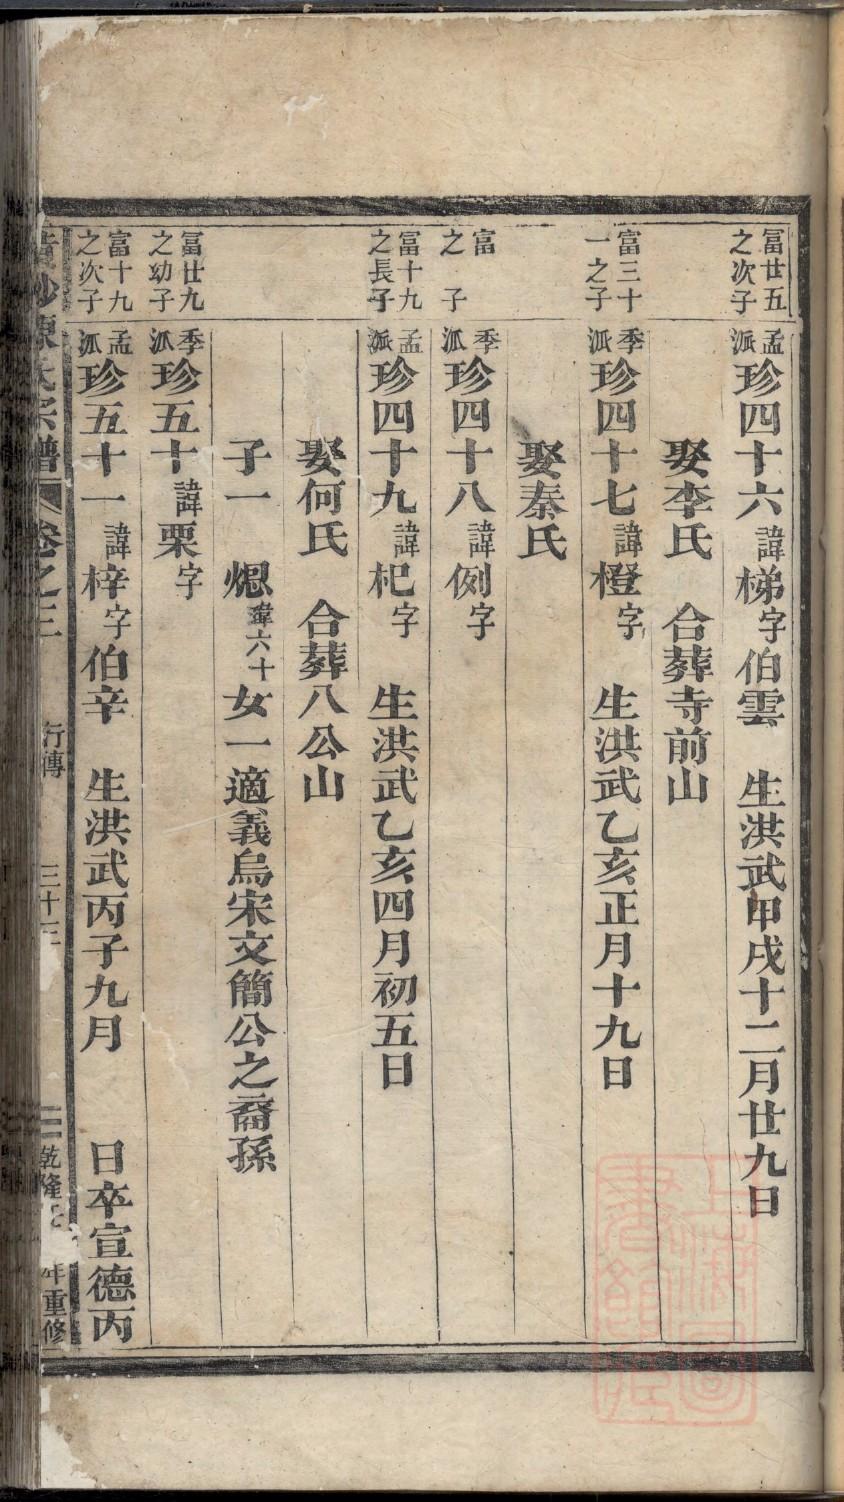 富廿五之次子
孟派珍四十六諱梯字伯雲 生洪武甲戌十二月廿九日
娶李氏 合葬寺前山
富三十一之子
季派珍四十七諱橙字 生洪武乙亥正月十九日
娶秦氏
富 之子
季派珍四十八諱例字
富十九之長子
孟派珍四十九諱杞字 生洪武乙亥四月初五日
娶何氏 合葬八公山
子一 煾瑋六十 女一適義烏宋文簡公之裔孫
富廿九之幼子
季派珍五十諱栗字
富十九之次子
孟派珍五十一諱梓字伯辛 生洪武丙子九月 日卒宣德丙
陳氏宗譜 卷之三 行傳 乾隆 年重修
上海圖書館藏